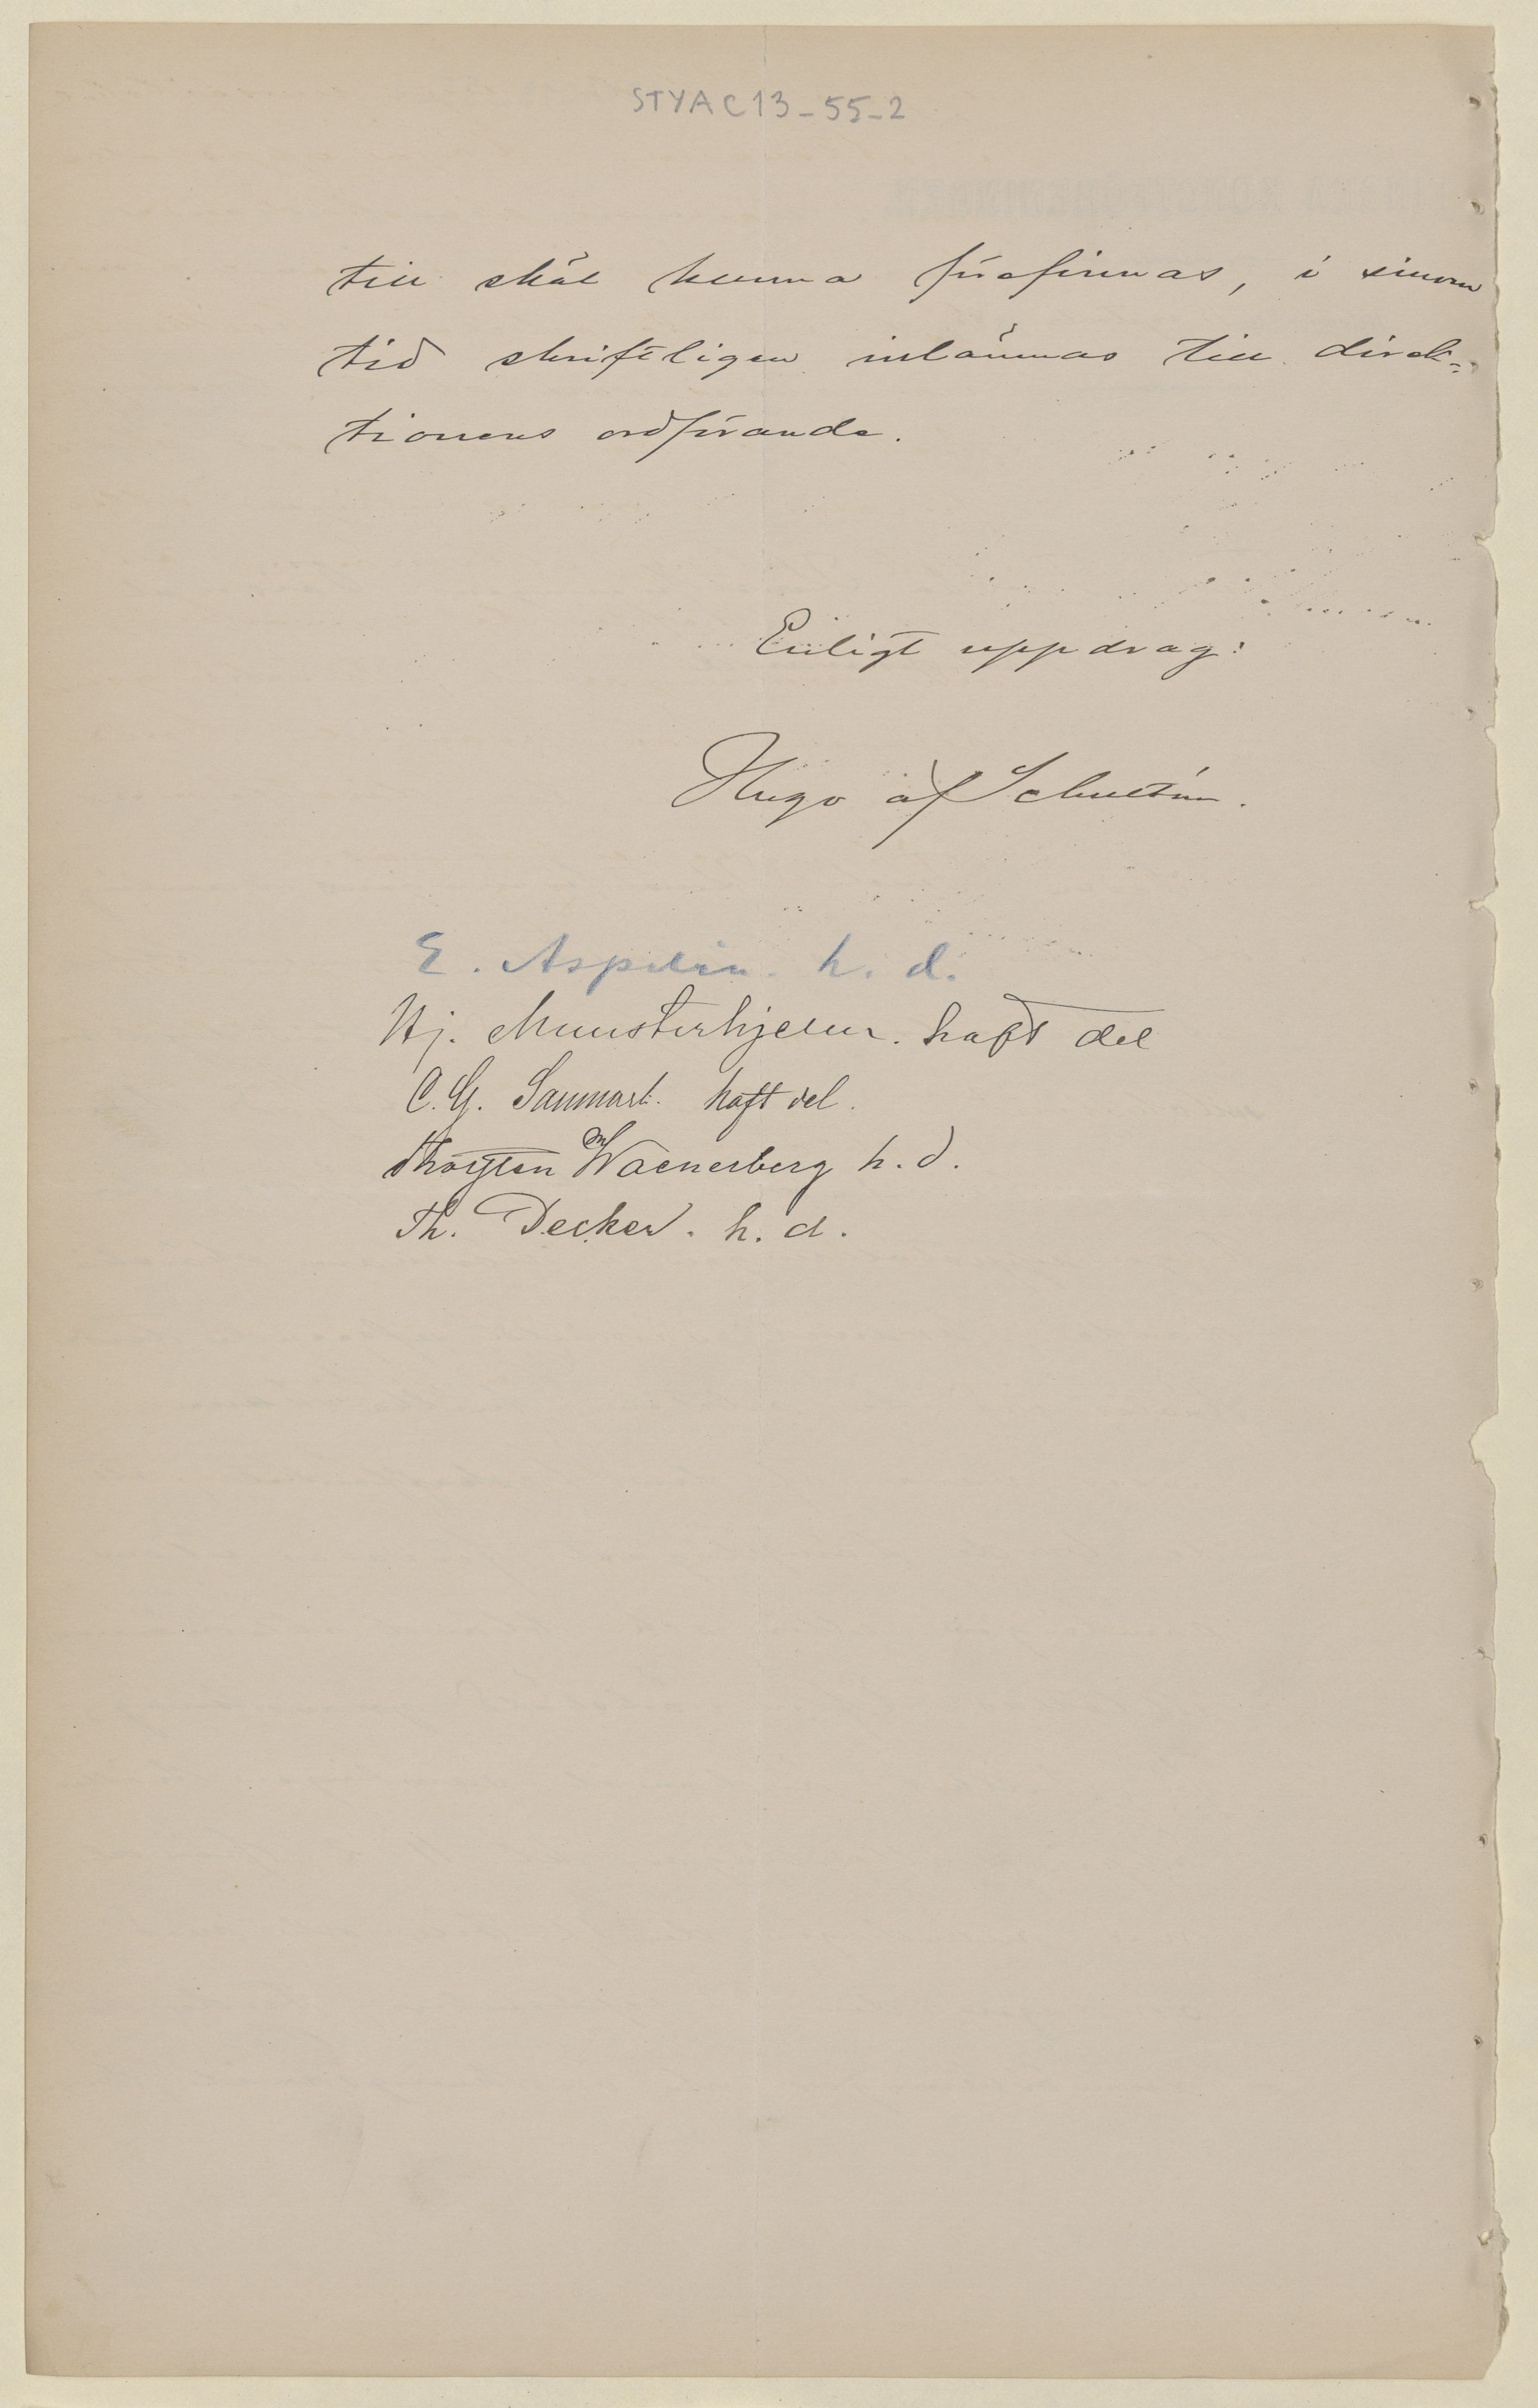 STYAC13-55-2
till skäl kunna förefinnas, i sinom
tid skriftligen inlämnas till direk-
tionens ordförande.
Enligt uppdrag:
Hugo af Schultén.
E. Aspelin. h. d.
Hj. Munsterhjelm. haft del
C. G. Sanmark. haft del.
Thorsten Waenerberg h. d.
Th. Decker. h. d.